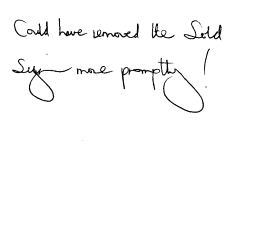 Could have removed the Sold
Sign more promptly!